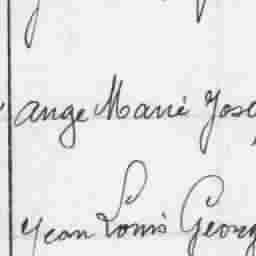 Ange Marie Jose
Jean Louis Georg